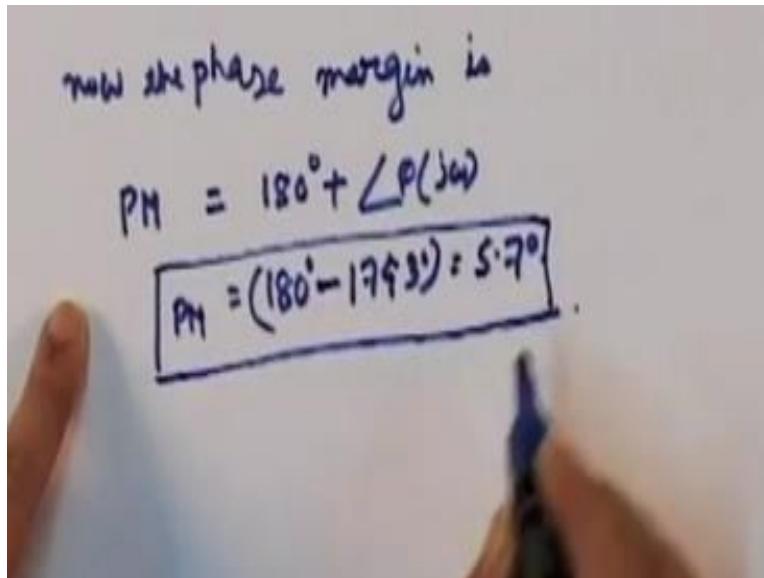 now the phase margin is
PM = 180° + ∠P(jω)
PM = (180° - 174.3°) = 5.7°